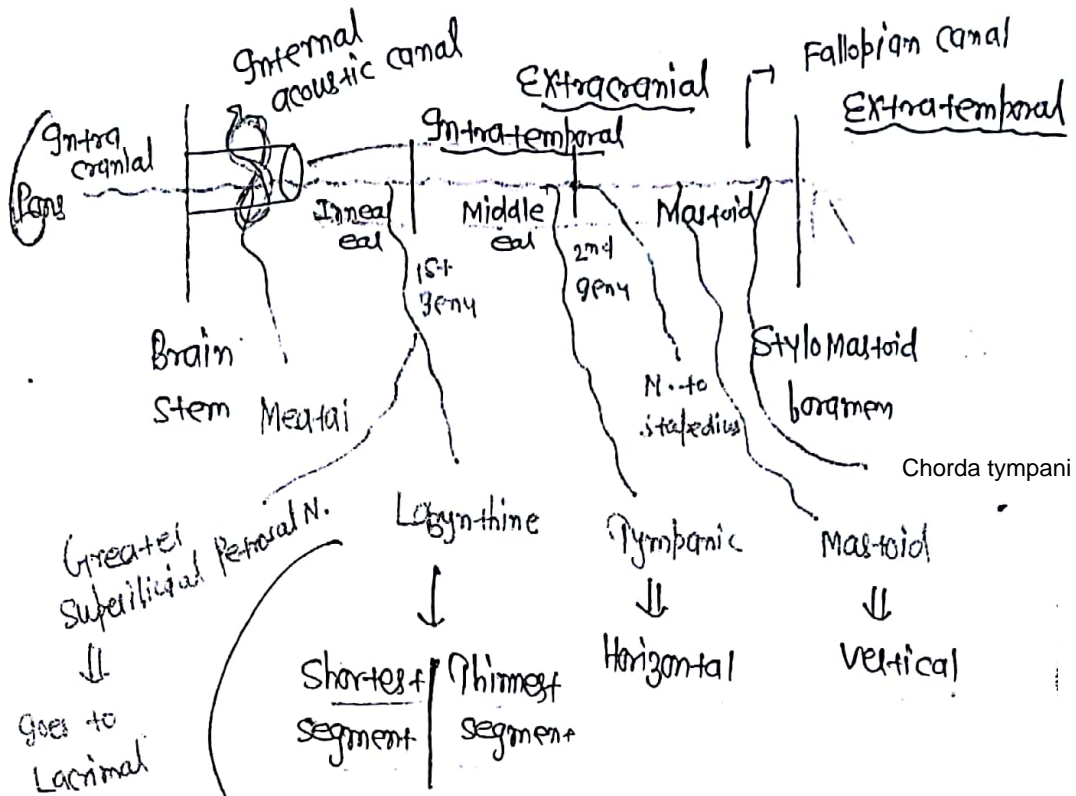 Internal
acoustic canal
Fallopian canal
Extracranial
Extratemporal
Intratemporal
Intra
cranial
Pons
Inneal
eal
Middle
eal
Mastoid
1st
genu
2nd
genu
Brain
stem
Meatai
N. to
stapedius
StyloMastoid
foramen
Chorda tympani
Greatei
Superficial Petrosal N.
Labynthine
Tympanic
Mastoid
Goes to
Lacrimal
Shortest
segment
Thinnest
segment
Horizontal
Veltical